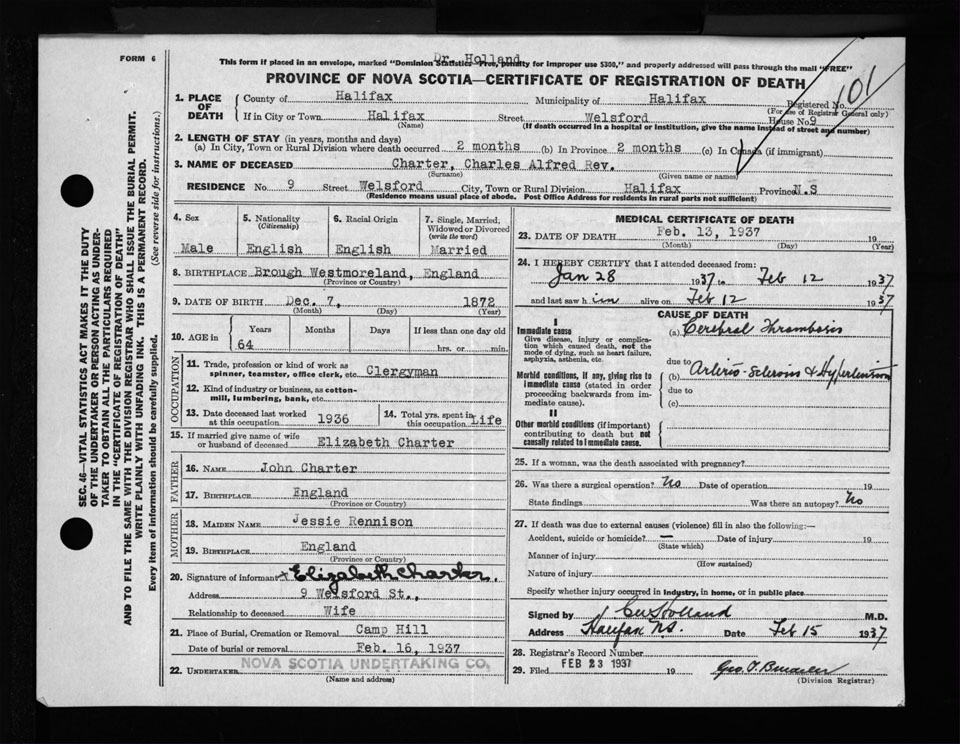 FORM 6
Dr. Holland
This form if placed in an envelope, marked "Dominion Statistics—Free, penalty for improper use $300," and properly addressed will pass through the mail "FREE"
PROVINCE OF NOVA SCOTIA—CERTIFICATE OF REGISTRATION OF DEATH
101
1. PLACE OF DEATH
County of Halifax Municipality of Halifax Registered No.
(For use of Registrar General only)
If in City or Town Halifax Street Welsford House No. 9
(Name) (If death occurred in a hospital or institution, give the name instead of street and number)
2. LENGTH OF STAY (in years, months and days)
(a) In City, Town or Rural Division where death occurred 2 months (b) In Province 2 months (c) In Canada (if immigrant)
3. NAME OF DECEASED Charter, Charles Alfred Rev.
(Surname) (Given name or names)
RESIDENCE No. 9 Street Welsford City, Town or Rural Division Halifax Province N.S
(Residence means usual place of abode. Post Office Address for residents in rural parts not sufficient)
4. Sex
Male
5. Nationality
(Citizenship)
English
6. Racial Origin
English
7. Single, Married, Widowed or Divorced
(write the word)
Married
8. BIRTHPLACE Brough Westmoreland, England
(Province or Country)
9. DATE OF BIRTH Dec. 7, 1872
(Month) (Day) (Year)
10. AGE in
Years Months Days If less than one day old
64 hrs. or min.
OCCUPATION
11. Trade, profession or kind of work as
spinner, teamster, office clerk, etc. Clergyman
12. Kind of industry or business, as cotton-
mill, lumbering, bank, etc.
13. Date deceased last worked
at this occupation 1936
14. Total yrs. spent in
this occupation Life
15. If married give name of wife
or husband of deceased Elizabeth Charter
FATHER
16. NAME John Charter
17. BIRTHPLACE England
(Province or Country)
MOTHER
18. MAIDEN NAME Jessie Rennison
19. BIRTHPLACE England
(Province or Country)
20. Signature of informant x Elizabeth Charter.
Address 9 Welsford St.,
Relationship to deceased Wife
21. Place of Burial, Cremation or Removal Camp Hill
Date of burial or removal Feb. 16, 1937
22. UNDERTAKER NOVA SCOTIA UNDERTAKING CO.
(Name and address)
MEDICAL CERTIFICATE OF DEATH
23. DATE OF DEATH Feb. 13, 1937 19
(Month) (Day) (Year)
24. I HEREBY CERTIFY that I attended deceased from:
Jan 28 1937 to Feb 12 1937
and last saw him alive on Feb 12 1937
CAUSE OF DEATH
I
Immediate cause
Give disease, injury or complica-
tion which caused death, not the
mode of dying, such as heart failure,
asphyxia, asthenia, etc.
(a) Cerebral Thrombosis
due to
Morbid conditions, if any, giving rise to
immediate cause (stated in order
proceeding backwards from im-
mediate cause).
(b) Arterio-Sclerosis & Hypertension
due to
(c)
II
Other morbid conditions (if important)
contributing to death but not
causally related to immediate cause.
25. If a woman, was the death associated with pregnancy?
26. Was there a surgical operation? No Date of operation 19
State findings Was there an autopsy? No
27. If death was due to external causes (violence) fill in also the following:—
Accident, suicide or homicide? — Date of injury 19
(State which)
Manner of injury
(How sustained)
Nature of injury
Specify whether injury occurred in industry, in home, or in public place
Signed by Holland M.D.
Address Halifax N.S. Date Feb 15 1937
28. Registrar's Record Number
29. Filed FEB 23 1937 19
(Division Registrar)
SEC. 46—VITAL STATISTICS ACT MAKES IT THE DUTY
OF THE UNDERTAKER OR PERSON ACTING AS UNDER-
TAKER TO OBTAIN ALL THE PARTICULARS REQUIRED
IN THE "CERTIFICATE OF REGISTRATION OF DEATH"
AND TO FILE THE SAME WITH THE DIVISION REGISTRAR WHO SHALL ISSUE THE BURIAL PERMIT.
WRITE PLAINLY WITH UNFADING INK. THIS IS A PERMANENT RECORD.
Every item of information should be carefully supplied. (See reverse side for instructions.)